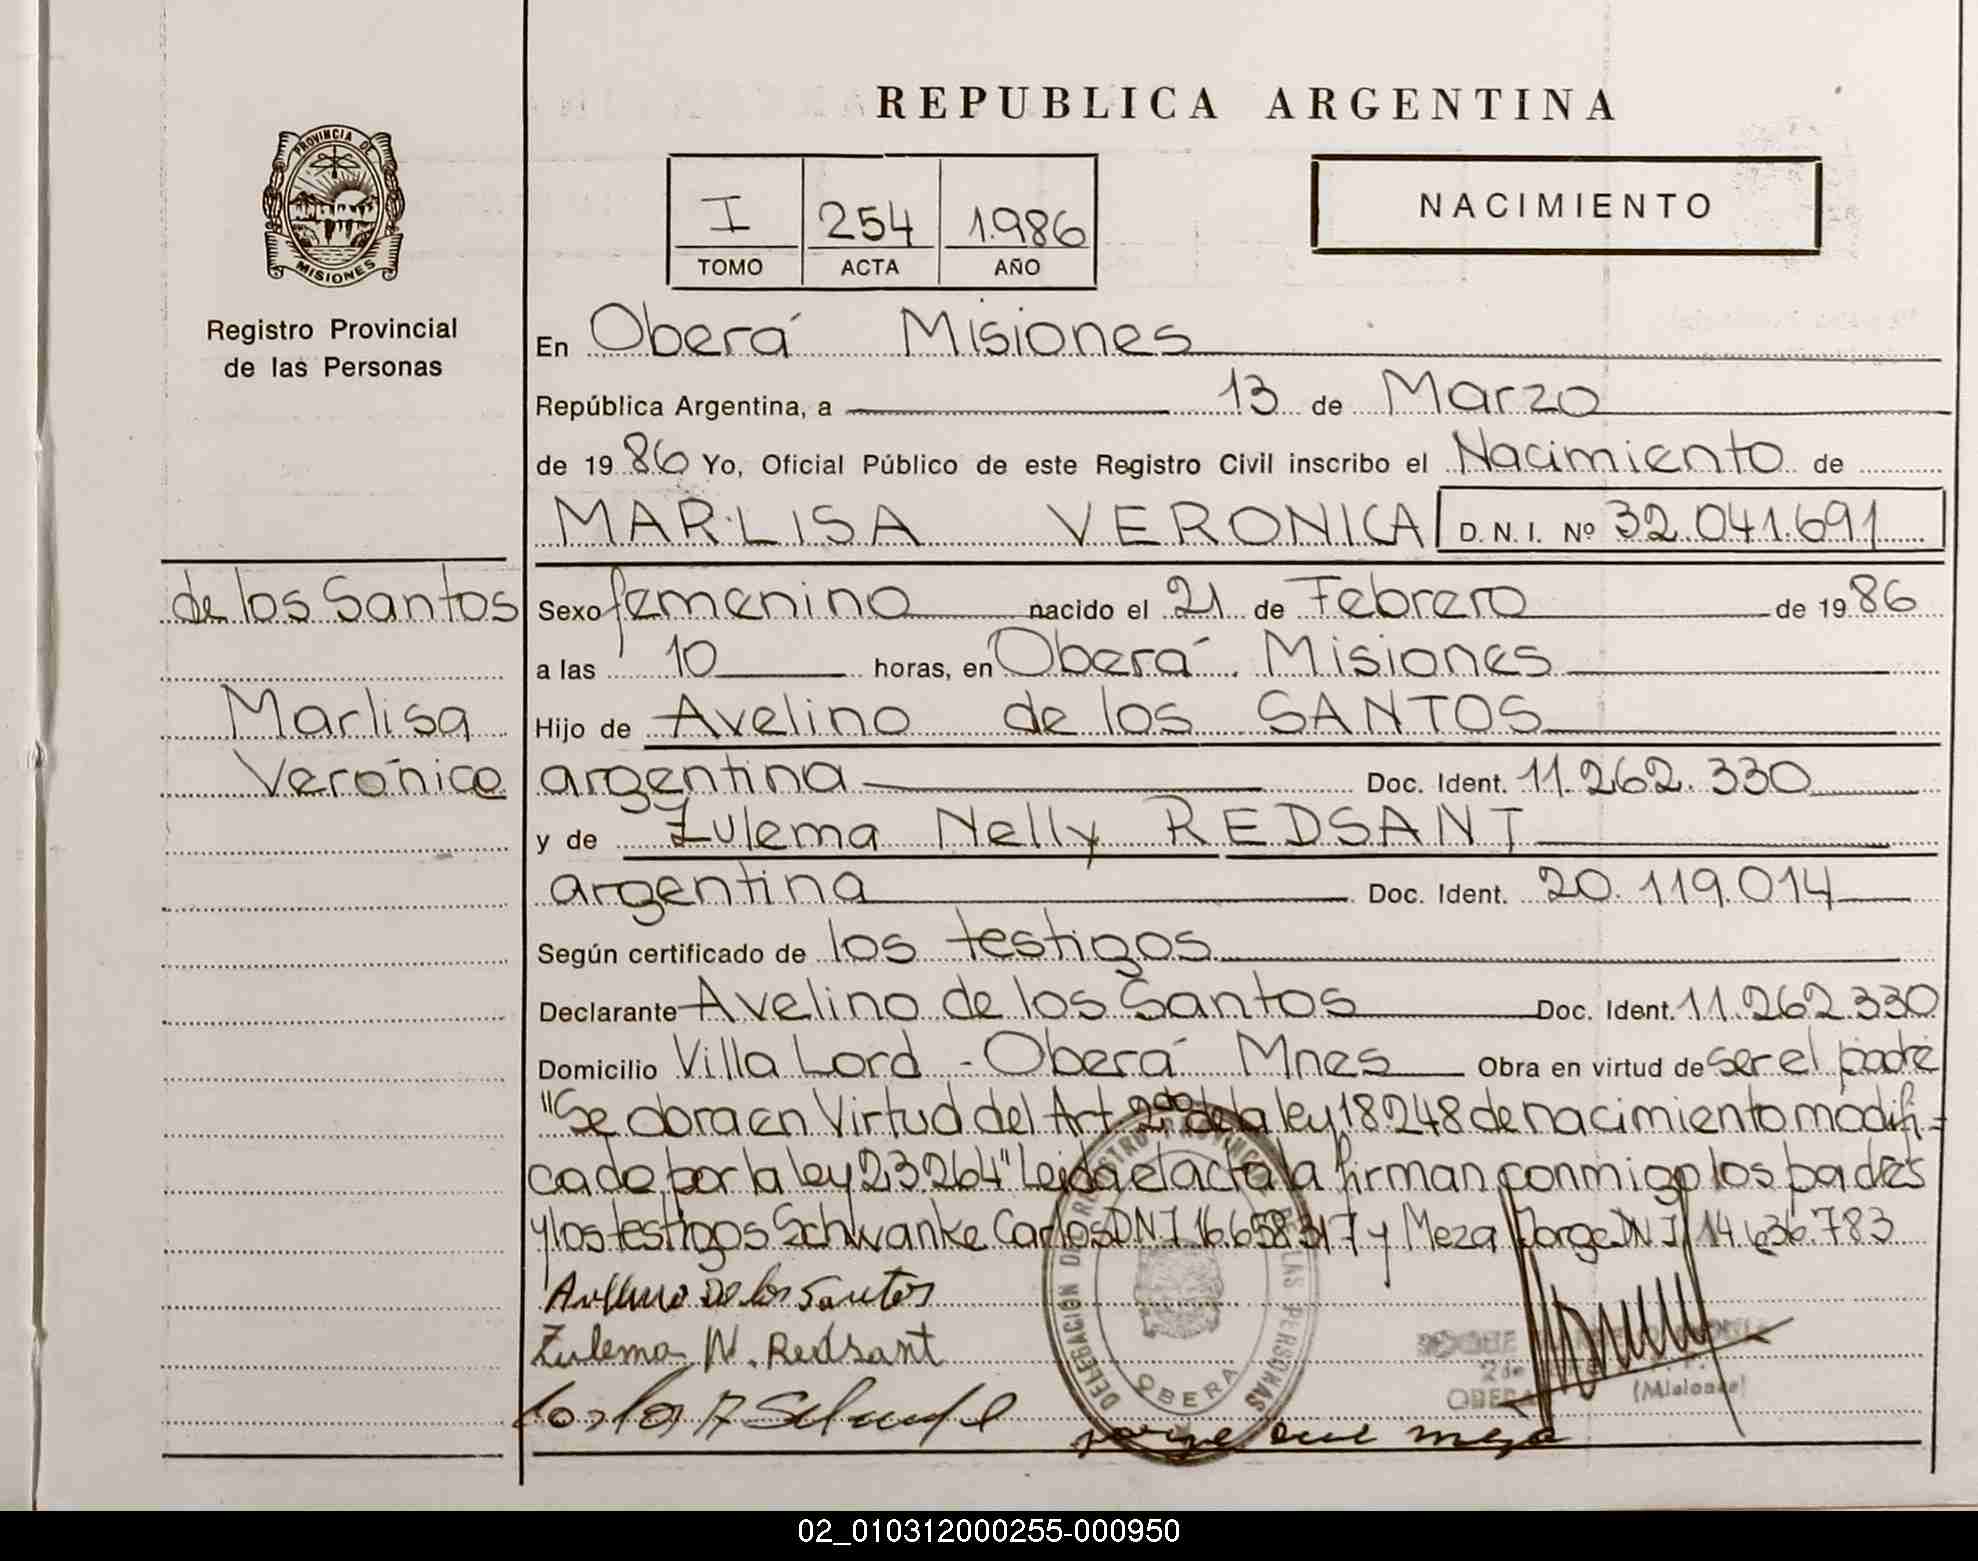 REPUBLICA ARGENTINA
PROVINCIA DE
MISIONES
Registro Provincial
de las Personas
I 254 1.986
TOMO ACTA AÑO
NACIMIENTO
En Oberá Misiones
República Argentina, a 13 de Marzo
de 19 86 Yo, Oficial Público de este Registro Civil inscribo el Nacimiento de
MARLISA VERONICA D. N. I. Nº 32.041.691
de los Santos
Marlisa
Verónica
Sexo femenino nacido el 21 de Febrero de 19 86
a las 10 horas, en Oberá Misiones
Hijo de Avelino de los SANTOS
argentina Doc. Ident. 11.262.330
y de Zulema Nelly REDSANT
argentina Doc. Ident. 20.119.014
Según certificado de los testigos
Declarante Avelino de los Santos Doc. Ident. 11.262.330
Domicilio Villa Lord - Oberá Mnes Obra en virtud de ser el padre
"Se obra en Virtud del Art. 2do de la ley 18248 de nacimiento modifi=
cado por la ley 23.264" Leida el acta la firman conmigo los padres
y los testigos Schwanke Carlos DNI 16.658.317 y Meza Jorge DNI 14.636.783
Avelino De los Santos
Zulema N. Redsant
Carlos A Schwanke
Jorge meza
DELEGACIÓN DE REGISTRO PROVINCIAL DE LAS PERSONAS
OBERA
OBERA (Misiones)
02_010312000255-000950